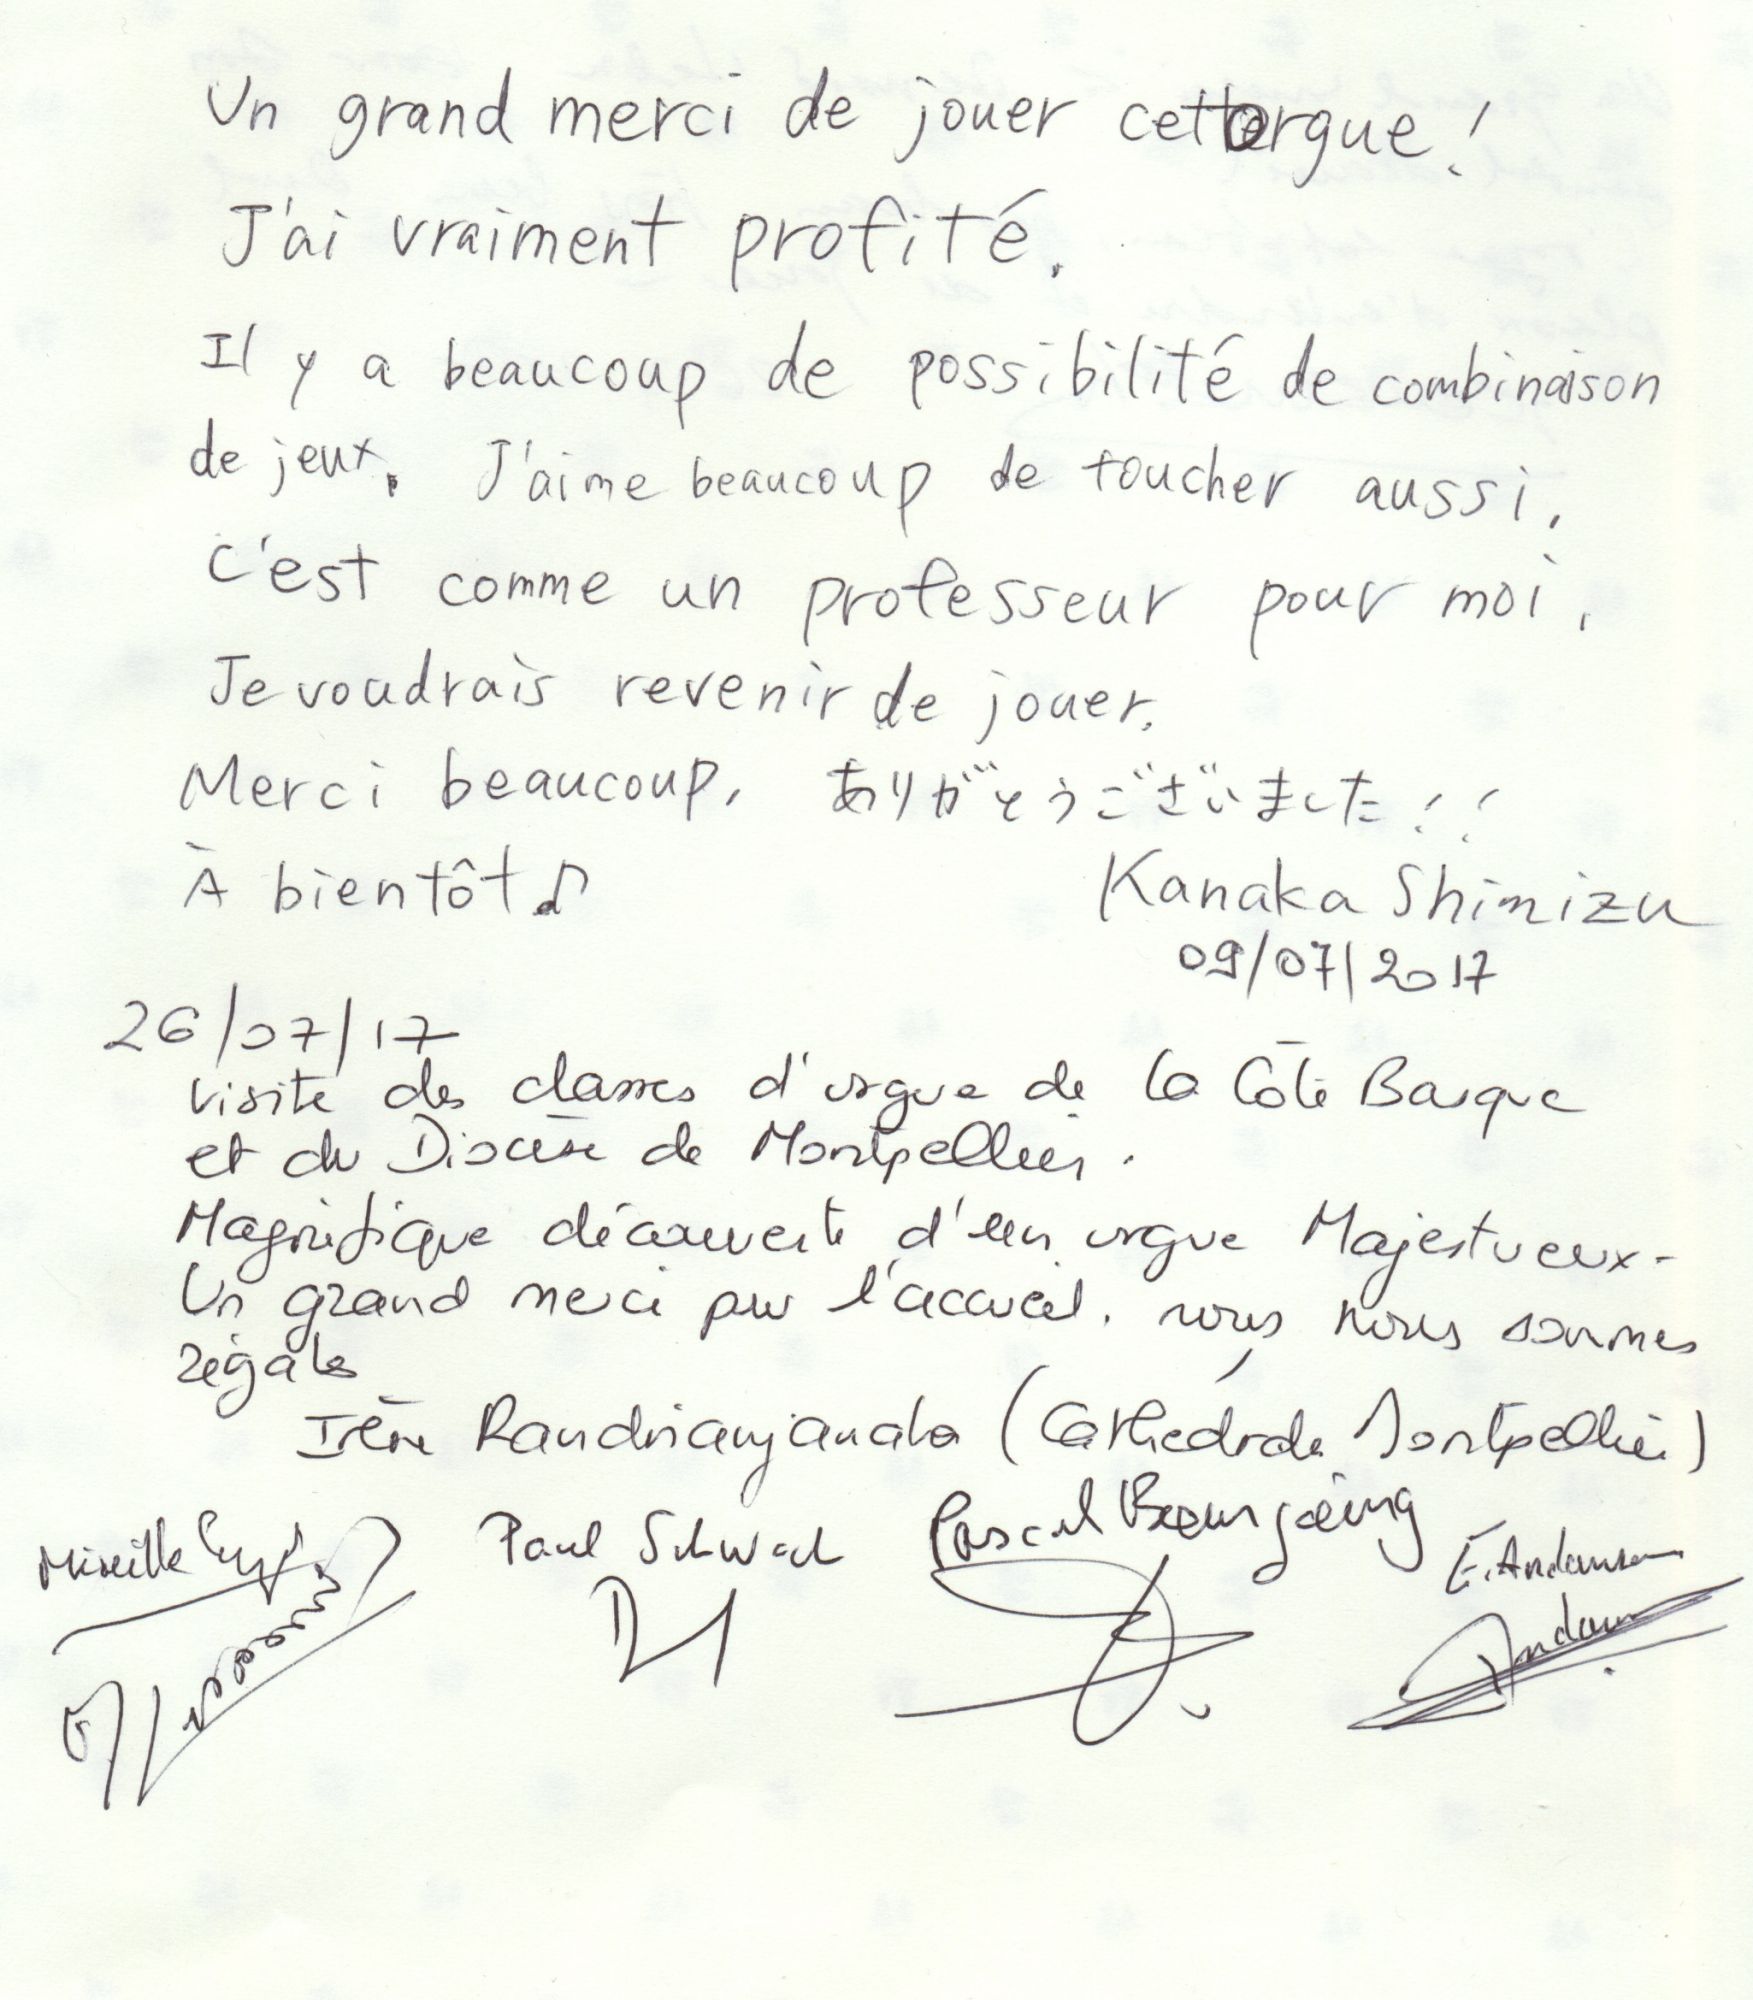 Un grand merci de jouer cet orgue!
J'ai vraiment profité.
Il y a beaucoup de possibilité de combinaison
de jeux. J'aime beaucoup de toucher aussi.
C'est comme un professeur pour moi.
Je voudrais revenir de jouer.
Merci beaucoup, ありがとうございました!!
À bientôt♪
Kanaka Shimizu
09/07/2017
26/07/17
visite des classes d'orgue de la Côte Basque
et du Diocèse de Montpellier.
Magnifique découverte d'un orgue Majestueux-
Un grand merci pour l'accueil. nous nous sommes
régalés
Irène Randrianjanaka (Cathédrale Montpellier)
Mireille
Paul Schwach
Pascal Bourgoing
E. Andanson